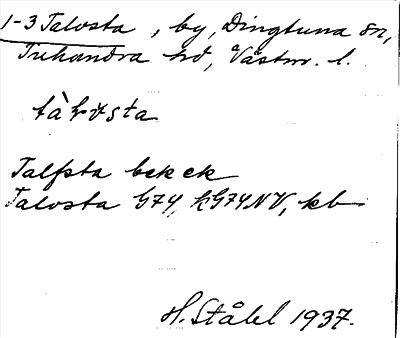 1-3 Talosta, by, Dingtuna sn,
Tuhundra hd, Västm. l.
Talpsta bekek
Talosta G74, kG74NV, kb
H. Ståhl 1937.